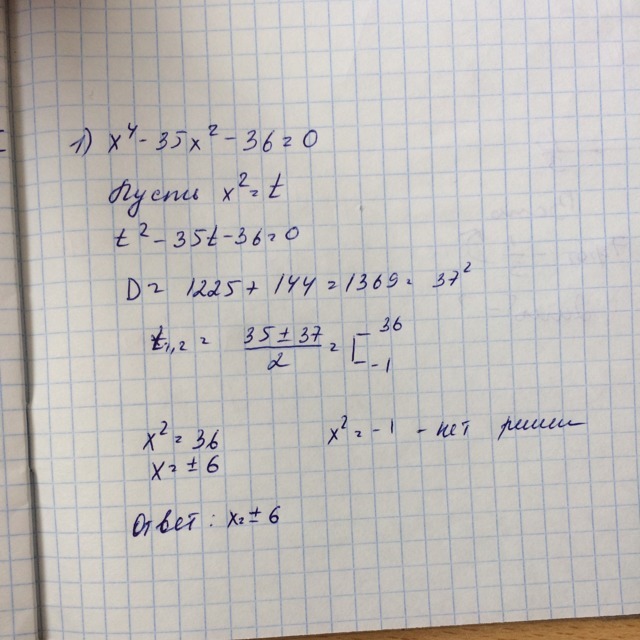 1) x⁴ - 35x² - 36 = 0
Пусть x² = t
t² - 35t - 36 = 0
D = 1225 + 144 = 1369 = 37²
t₁,₂ = (35 ± 37)/2 = [ 36 -1
x² = 36 x² = -1 - нет решен
x = ± 6
Ответ: x = ± 6